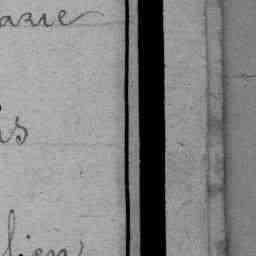 arie
is
lien